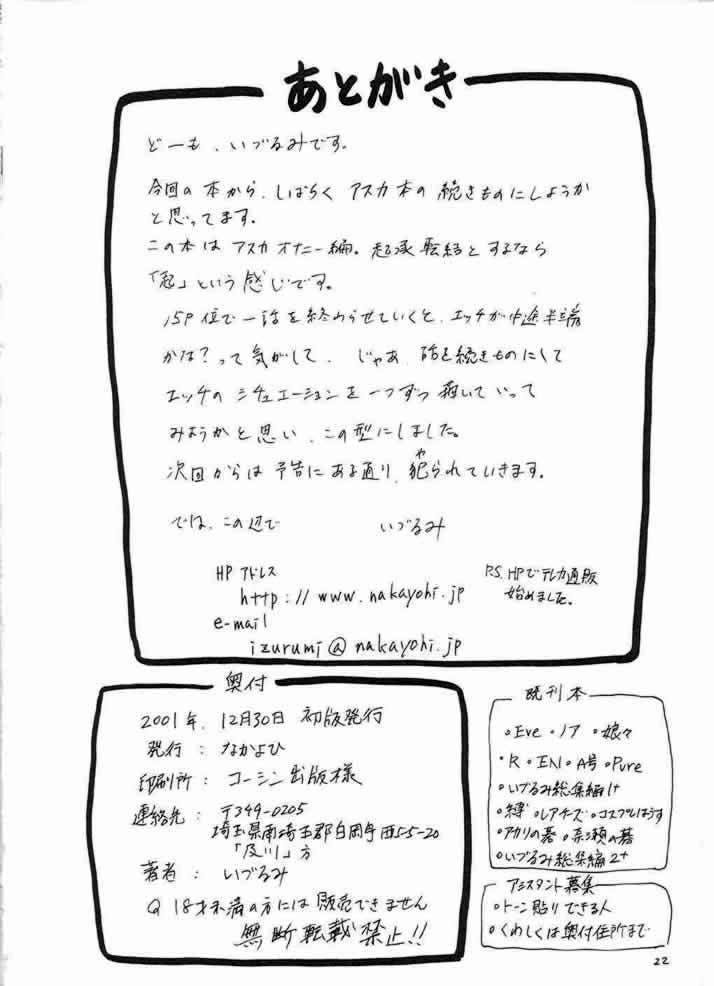 あとがき
どーも、いづるみです。
今回の本から、しばらく アスカ本の 続きものにしようか
と思ってます。
この本は アスカオナニー編。起承転結とするなら
「起」という感じです。
15P位で一話を終わらせていくと、エッチが中途半端
かな？って気がして、じゃあ、話を続きものにして
エッチの シチュエーションを 一つずつ 描いていって
みようかと思い、この型にしました。
次回からは 予告にある通り、犯られていきます。
や
では、この辺で いづるみ
HP アドレス
http://www.nakayohi.jp
e-mail
izurumi@nakayohi.jp
P.S. HPでテレカ通販
始めました。
奥付
2001年、12月30日 初版発行
発行：なかよひ
印刷所：コーシン出版様
連絡先：〒349-0205
埼玉県南埼玉郡白岡町西5-5-20
「及川」方
著者：いづるみ
18才未満の方には 販売できません
無断転載禁止!!
既刊本
・Eve ・ノア ・娘々
・R ・EN ・A号 ・Pure
・いづるみ総集編1+
・縛 ・レアチーズ ・コスプレはうす
・アカリの碁 ・奈瀬の碁
・いづるみ総集編2+
アシスタント募集
・トーン貼りできる人
・くわしくは奥付住所まで
22